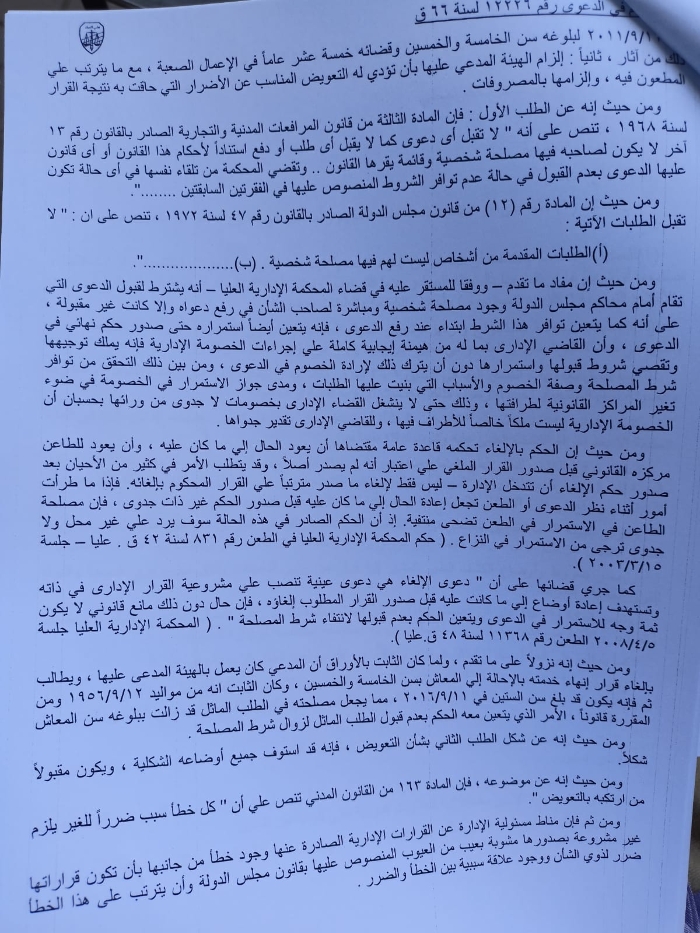 في الدعوى رقم ١٢٢٢٦ لسنة ٦٦ ق
٢٠١١/٩/١ لبلوغه سن الخامسة والخمسين وقضائه خمسة عشر عاماً في الإعمال الصعبة ، مع ما يترتب علي
ذلك من آثار ، ثانياً : إلزام الهيئة المدعي عليها بأن تؤدي له التعويض المناسب عن الأضرار التي حاقت به نتيجة القرار
المطعون فيه ، وإلزامها بالمصروفات .
ومن حيث إنه عن الطلب الأول : فإن المادة الثالثة من قانون المرافعات المدنية والتجارية الصادر بالقانون رقم ١٣
لسنة ١٩٦٨ ، تنص على أنه " لا تقبل أى دعوى كما لا يقبل أى طلب أو دفع استناداً لأحكام هذا القانون أو أى قانون
آخر لا يكون لصاحبه فيها مصلحة شخصية وقائمة يقرها القانون .. وتقضي المحكمة من تلقاء نفسها في أى حالة تكون
عليها الدعوى بعدم القبول في حالة عدم توافر الشروط المنصوص عليها في الفقرتين السابقتين ........".
ومن حيث إن المادة رقم (١٢) من قانون مجلس الدولة الصادر بالقانون رقم ٤٧ لسنة ١٩٧٢ ، تنص على ان : " لا
تقبل الطلبات الأتية :
(أ)الطلبات المقدمة من أشخاص ليست لهم فيها مصلحة شخصية . (ب)...................".
ومن حيث إن مفاد ما تقدم – ووفقا للمستقر عليه في قضاء المحكمة الإدارية العليا – أنه يشترط لقبول الدعوى التي
تقام أمام محاكم مجلس الدولة وجود مصلحة شخصية ومباشرة لصاحب الشأن في رفع دعواه وإلا كانت غير مقبولة ،
على أنه كما يتعين توافر هذا الشرط ابتداء عند رفع الدعوى ، فإنه يتعين أيضاً استمراره حتى صدور حكم نهائي في
الدعوى ، وأن القاضي الإدارى بما له من هيمنة إيجابية كاملة علي إجراءات الخصومة الإدارية فإنه يملك توجيهها
وتقصي شروط قبولها واستمرارها دون أن يترك ذلك لإرادة الخصوم في الدعوى ، ومن بين ذلك التحقق من توافر
شرط المصلحة وصفة الخصوم والأسباب التي بنيت عليها الطلبات ، ومدى جواز الاستمرار في الخصومة في ضوء
تغير المراكز القانونية لطرافتها ، وذلك حتى لا ينشغل القضاء الإدارى بخصومات لا جدوى من ورائها بحسبان أن
الخصومة الإدارية ليست ملكاً خالصاً للأطراف فيها ، وللقاضي الإدارى تقدير جدواها .
ومن حيث إن الحكم بالإلغاء تحكمه قاعدة عامة مقتضاها أن يعود الحال إلي ما كان عليه ، وأن يعود للطاعن
مركزه القانوني قبل صدور القرار الملغي علي اعتبار أنه لم يصدر أصلاً ، وقد يتطلب الأمر في كثير من الأحيان بعد
صدور حكم الإلغاء أن تتدخل الإدارة – ليس فقط لإلغاء ما صدر مترتباً علي القرار المحكوم بإلغائه. فإذا ما طرأت
أمور أثناء نظر الدعوى أو الطعن تجعل إعادة الحال إلي ما كان عليه قبل صدور الحكم غير ذات جدوى ، فإن مصلحة
الطاعن في الاستمرار في الطعن تضحى منتفية. إذ أن الحكم الصادر في هذه الحالة سوف يرد علي غير محل ولا
جدوى ترجى من الاستمرار في النزاع . ( حكم المحكمة الإدارية العليا في الطعن رقم ٨٣١ لسنة ٤٢ ق . عليا – جلسة
٢٠٠٣/٣/١٥ ).
كما جري قضائها على أن " دعوى الإلغاء هي دعوى عينية تنصب علي مشروعية القرار الإدارى في ذاته
وتستهدف إعادة أوضاع إلي ما كانت عليه قبل صدور القرار المطلوب إلغاؤه ، فإن حال دون ذلك مانع قانوني لا يكون
ثمة وجه للاستمرار في الدعوى ويتعين الحكم بعدم قبولها لانتفاء شرط المصلحة " . ( المحكمة الإدارية العليا جلسة
٢٠٠٨/٤/٥ الطعن رقم ١١٣٦٨ لسنة ٤٨ ق.عليا ).
ومن حيث إنه نزولاً على ما تقدم ، ولما كان الثابت بالأوراق أن المدعي كان يعمل بالهيئة المدعى عليها ، ويطالب
بإلغاء قرار إنهاء خدمته بالإحالة إلي المعاش بسن الخامسة والخمسين ، وكان الثابت انه من مواليد ١٩٥٦/٩/١٢ ومن
ثم فإنه يكون قد بلغ سن الستين في ٢٠١٦/٩/١١ ، مما يجعل مصلحته في الطلب الماثل قد زالت ببلوغه سن المعاش
المقررة قانوناً ، الأمر الذي يتعين معه الحكم بعدم قبول الطلب الماثل لزوال شرط المصلحة .
ومن حيث إنه عن شكل الطلب الثاني بشأن التعويض ، فإنه قد استوف جميع أوضاعه الشكلية ، ويكون مقبولاً
شكلاً.
ومن حيث إنه عن موضوعه ، فإن المادة ١٦٣ من القانون المدني تنص علي أن " كل خطأ سبب ضرراً للغير يلزم
من ارتكبه بالتعويض ".
ومن ثم فإن مناط مسئولية الإدارة عن القرارات الإدارية الصادرة عنها وجود خطأ من جانبها بأن تكون قراراتها
غير مشروعة بصدورها مشوبة بعيب من العيوب المنصوص عليها بقانون مجلس الدولة وأن يترتب على هذا الخطأ
ضرر لذوي الشأن ووجود علاقة سببية بين الخطأ والضرر .